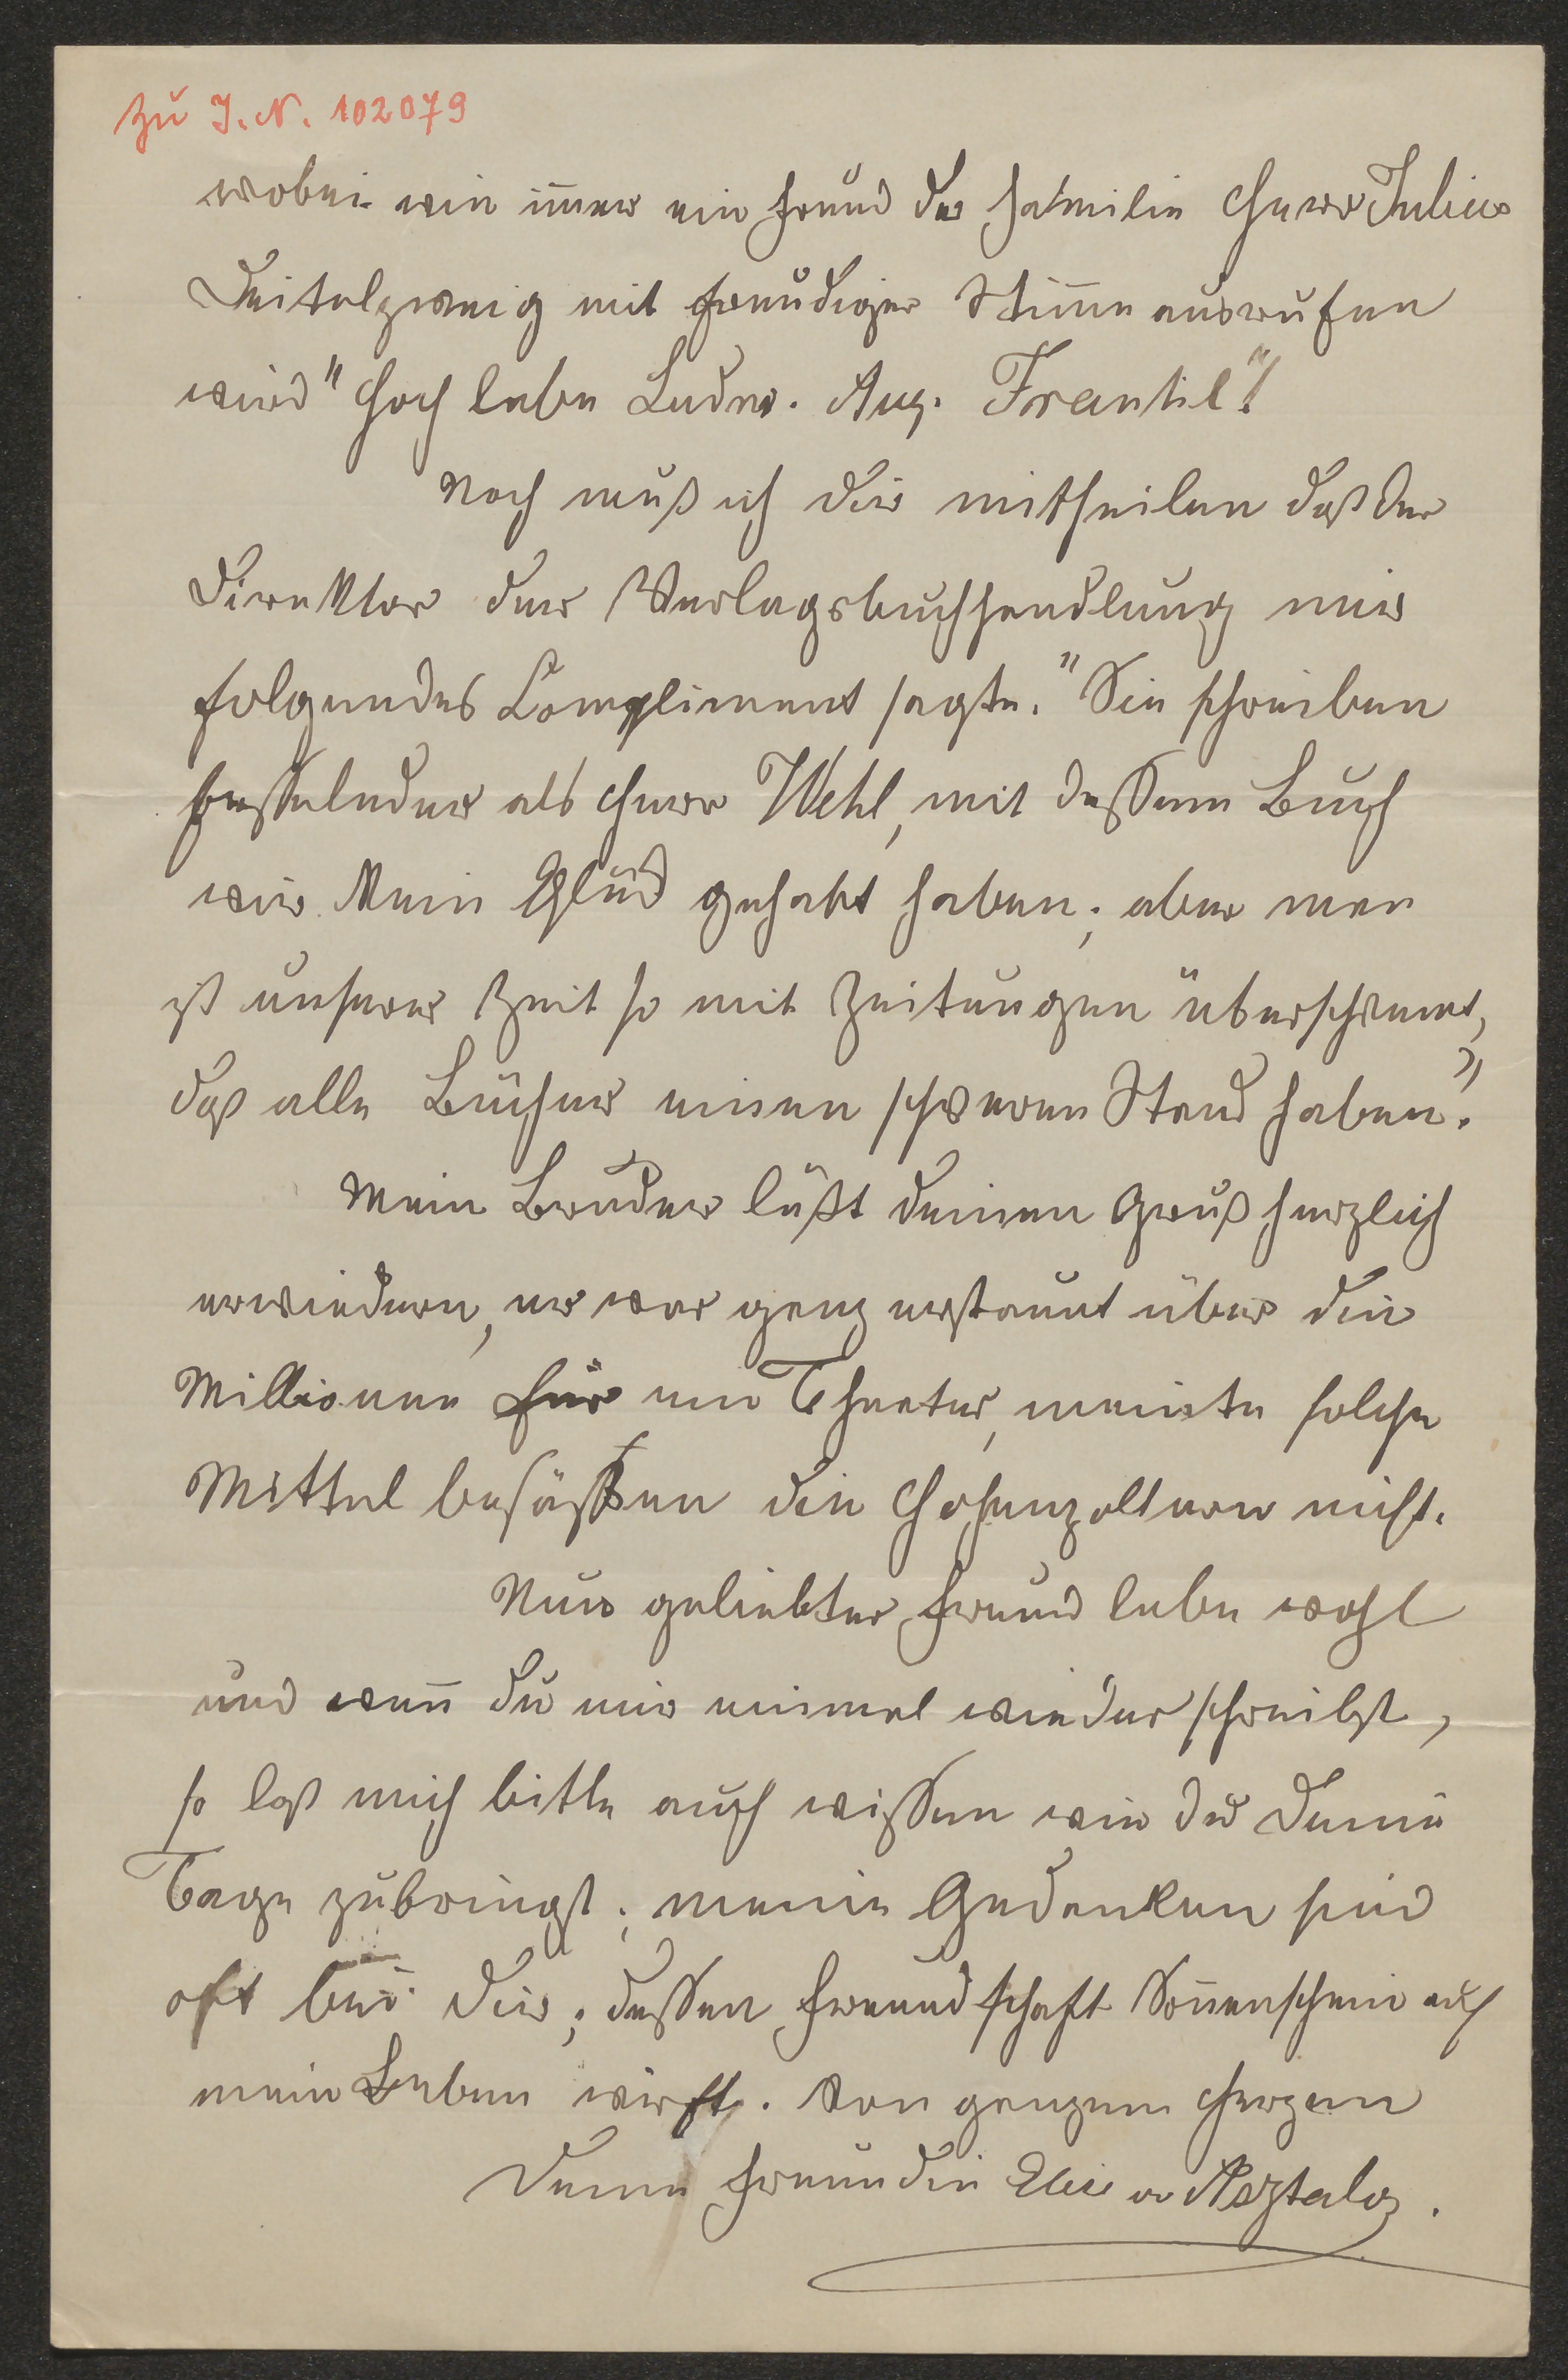 Zu J. N. 102079
wobei wie im̅er ein Freund der Familie Herr Julius
Deitelzweig mit freudiger Stim̅e ausrufen
wird "Hoch lebe Ludw. Aug. Frankl"!
Noch muß ich dir mittheilen daß der
Direktor der Verlagsbuchhandlung mir
folgendes Compliment sagte. "Sie schreiben
fesselnder als Herr Wehl, mit dessem Buch
wir kein Glück gehabt haben; aber man
ist unserer Zeit so mit Zeitungen überschwemt,
daß alle Bücher einen schweren Stand haben."
Mein Bruder läßt deinen Gruß herzlich
erwiedern, er war ganz erstaunt über die
Millionen für ein Theater, meinte solche
Mittel besäßen die Hohenzollern nicht.
Nun geliebter Freund lebe wohl
und wen̅ du mir einmal wieder schreibst,
so laß mich bitte auch wissen wie du deine
Tage zubringst; meine Gedanken sind
oft bei dir; dessen Freundschaft Son̅enschein auf
mein Leben wirft. Von ganzem Herzen
deine Freundin Elise v